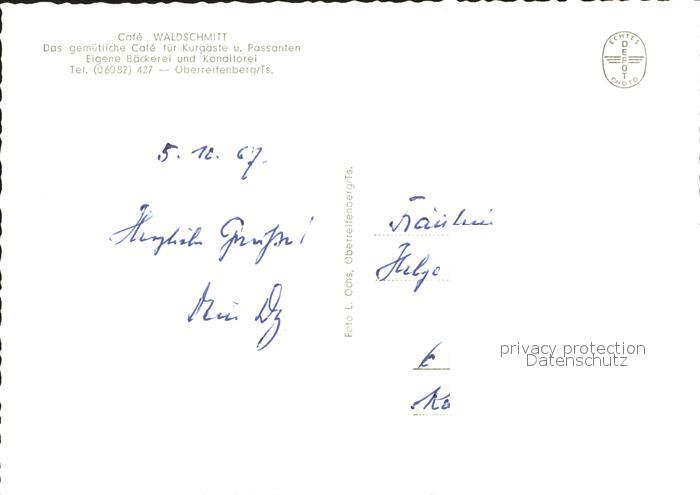 Café WALDSCHMITT
Das gemütliche Café für Kurgäste u. Passanten
Eigene Bäckerei und Konditorei
Tel. (06082) 427 — Oberreifenberg/Ts.
ECHTES
DEPOT
PHOTO
5. 10. 67.
Herzliche Grüße!
Foto L. Ochs, Oberreifenberg/Ts.
Fräulein
Helga
privacy protection
Datenschutz